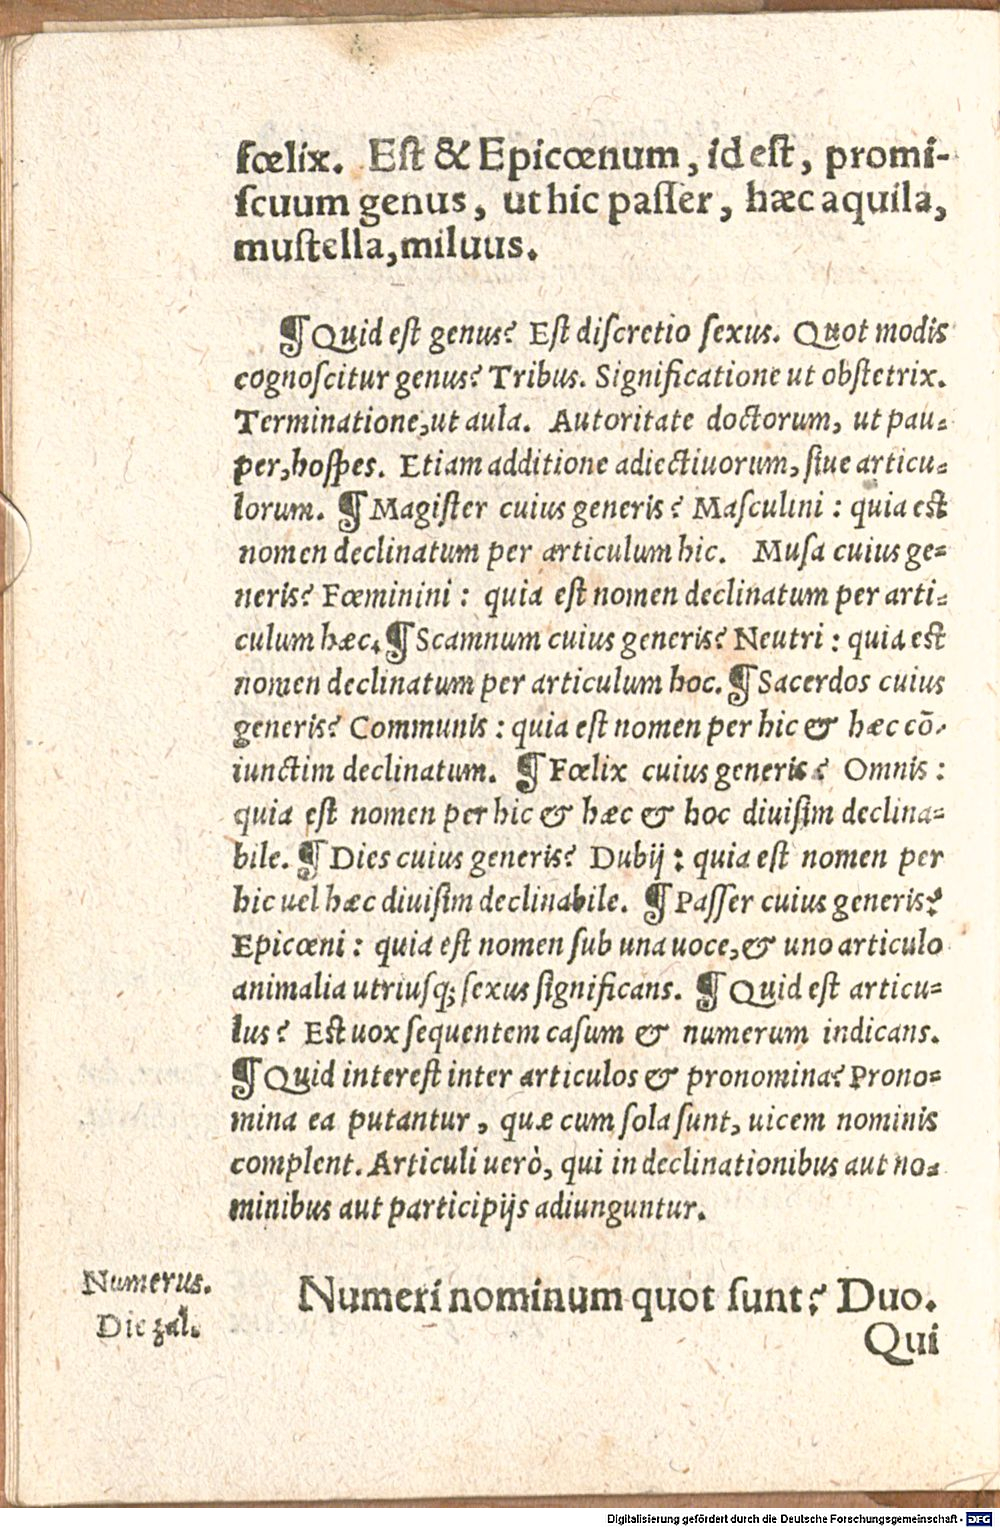 fœlix. Est & Epicœnum, id est, promi-
scuum genus, ut hic passer, hæc aquila,
mustella, miluus.
¶ Quid est genus? Est discretio sexus. Quot modis
cognoscitur genus? Tribus. Significatione ut obstetrix.
Terminatione, ut aula. Autoritate doctorum, ut pau-
per, hospes. Etiam additione adiectiuorum, siue articu-
lorum. ¶ Magister cuius generis? Masculini: quia est
nomen declinatum per articulum hic. Musa cuius ge-
neris? Fœminini: quia est nomen declinatum per arti-
culum hæc. ¶ Scamnum cuius generis? Neutri: quia est
nomen declinatum per articulum hoc. ¶ Sacerdos cuius
generis? Communis: quia est nomen per hic & hæc cō-
iunctim declinatum. ¶ Fœlix cuius generis? Omnis:
quia est nomen per hic & hæc & hoc diuisim declina-
bile. ¶ Dies cuius generis? Dubij: quia est nomen per
hic uel hæc diuisim declinabile. ¶ Passer cuius generis?
Epicœni: quia est nomen sub una uoce, & uno articulo
animalia utriusq; sexus significans. ¶ Quid est articu-
lus? Est uox sequentem casum & numerum indicans.
¶ Quid interest inter articulos & pronomina? Prono-
mina ea putantur, quæ cum sola sunt, uicem nominis
complent. Articuli uerò, qui in declinationibus aut no-
minibus aut participijs adiunguntur.
Numerus.
Die zal.
Numeri nominum quot sunt? Duo.
Qui
Digitalisierung gefördert durch die Deutsche Forschungsgemeinschaft - DFG